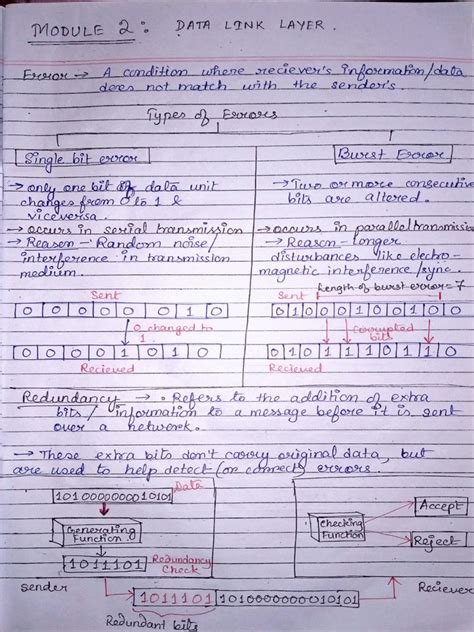 MODULE 2: DATA LINK LAYER.
Error → A condition where reciever's information/data
does not match with the sender's.
Types of Errors
Single bit error
→ only one bit of data unit
changes from 0 to 1 &
viceversa.
→ occurs in serial transmission
→ Reason - Random noise/
interference in transmission
medium.
Sent
0 0 0 0 0 0 1 0
0 changed to
1
0 0 0 0 1 0 1 0
Recieved
Burst Error
→ Two or more consecutive
bits are altered.
→ occurs in parallel transmission
→ Reason - longer
disturbances like electro-
magnetic interference/sync.
Sent Length of burst error = 7
0 1 0 0 0 1 0 0 1 0 0
Corrupted
bits
0 1 0 1 1 1 0 1 1 0
Recieved
Redundancy → • Refers to the addition of extra
bits / information to a message before it is sent
over a network.
→ These extra bits don't carry original data, but
are used to help detect (or correct) errors.
Data
10100000001010​1
Generating
Function
1011101 Redundancy
Check
Sender
1011101 101000000010101
Redundant bits
Checking
Function
Accept
Reject
Reciever